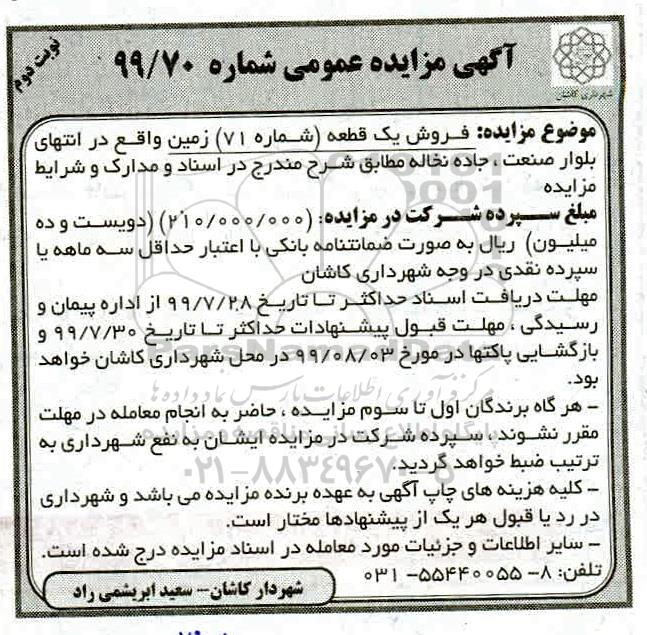 آگهی مزایده عمومی شماره ۹۹/۷۰
نوبت دوم
شهرداری کاشان
موضوع مزایده: فروش یک قطعه (شماره ۷۱) زمین واقع در انتهای
بلوار صنعت ، جاده نخاله مطابق شرح مندرج در اسناد و مدارک و شرایط
مزایده
مبلغ سپرده شرکت در مزایده: (۲۱۰/۰۰۰/۰۰۰) (دویست و ده
میلیون) ریال به صورت ضمانتنامه بانکی با اعتبار حداقل سه ماهه یا
سپرده نقدی در وجه شهرداری کاشان
مهلت دریافت اسناد حداکثر تا تاریخ ۹۹/۷/۲۸ از اداره پیمان و
رسیدگی ، مهلت قبول پیشنهادات حداکثر تا تاریخ ۹۹/۷/۳۰ و
بازگشایی پاکتها در مورخ ۹۹/۰۸/۰۳ در محل شهرداری کاشان خواهد
بود.
- هر گاه برندگان اول تا سوم مزایده ، حاضر به انجام معامله در مهلت
مقرر نشوند ، سپرده شرکت در مزایده ایشان به نفع شهرداری به
ترتیب ضبط خواهد گردید.
- کلیه هزینه های چاپ آگهی به عهده برنده مزایده می باشد و شهرداری
در رد یا قبول هر یک از پیشنهادها مختار است.
- سایر اطلاعات و جزئیات مورد معامله در اسناد مزایده درج شده است.
تلفن: ۸- ۵۵۴۴۰۰۵۵- ۰۳۱
شهردار کاشان- سعید ابریشمی راد
ParsNamadData
مرکز فرآوری اطلاعات پارس نماد داده ها
پایگاه اطلاع رسانی مناقصه و مزایده
۰۲۱-۸۸۳۴۹۶۷۰-۵